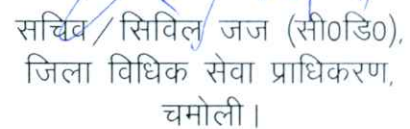 सचिव/सिविल जज (सी0डि0),
जिला विधिक सेवा प्राधिकरण,
चमोली।